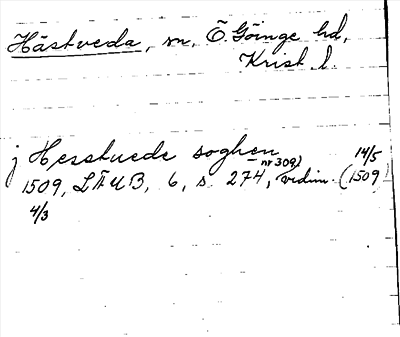 Hästveda, sn, Ö Göinge hd,
Krist. l.
j Hesstuede soghen
1509, LÄUB, 6, s. 274, (nr 309) vidim. (14/5 1509)
4/3